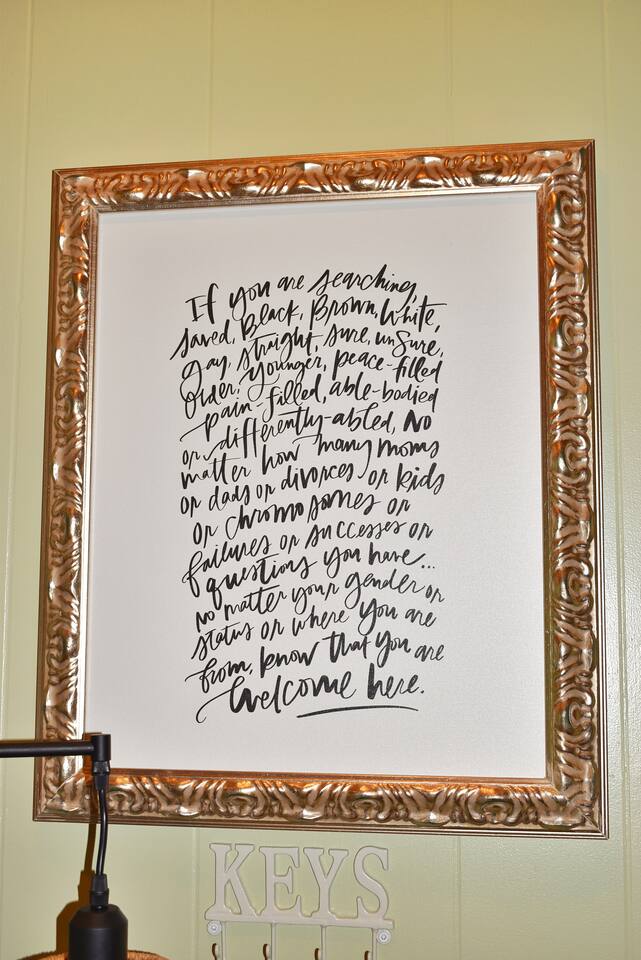 If you are searching,
saved, Black, Brown, White,
gay, straight, sure, unsure,
Older, younger, peace-filled
pain-filled, able-bodied
or differently-abled, No
matter how many moms
or dads or divorces or kids
or chromosomes or
failures or successes or
questions you have...
no matter your gender or
status or where you are
from, know that you are
Welcome here.
KEYS